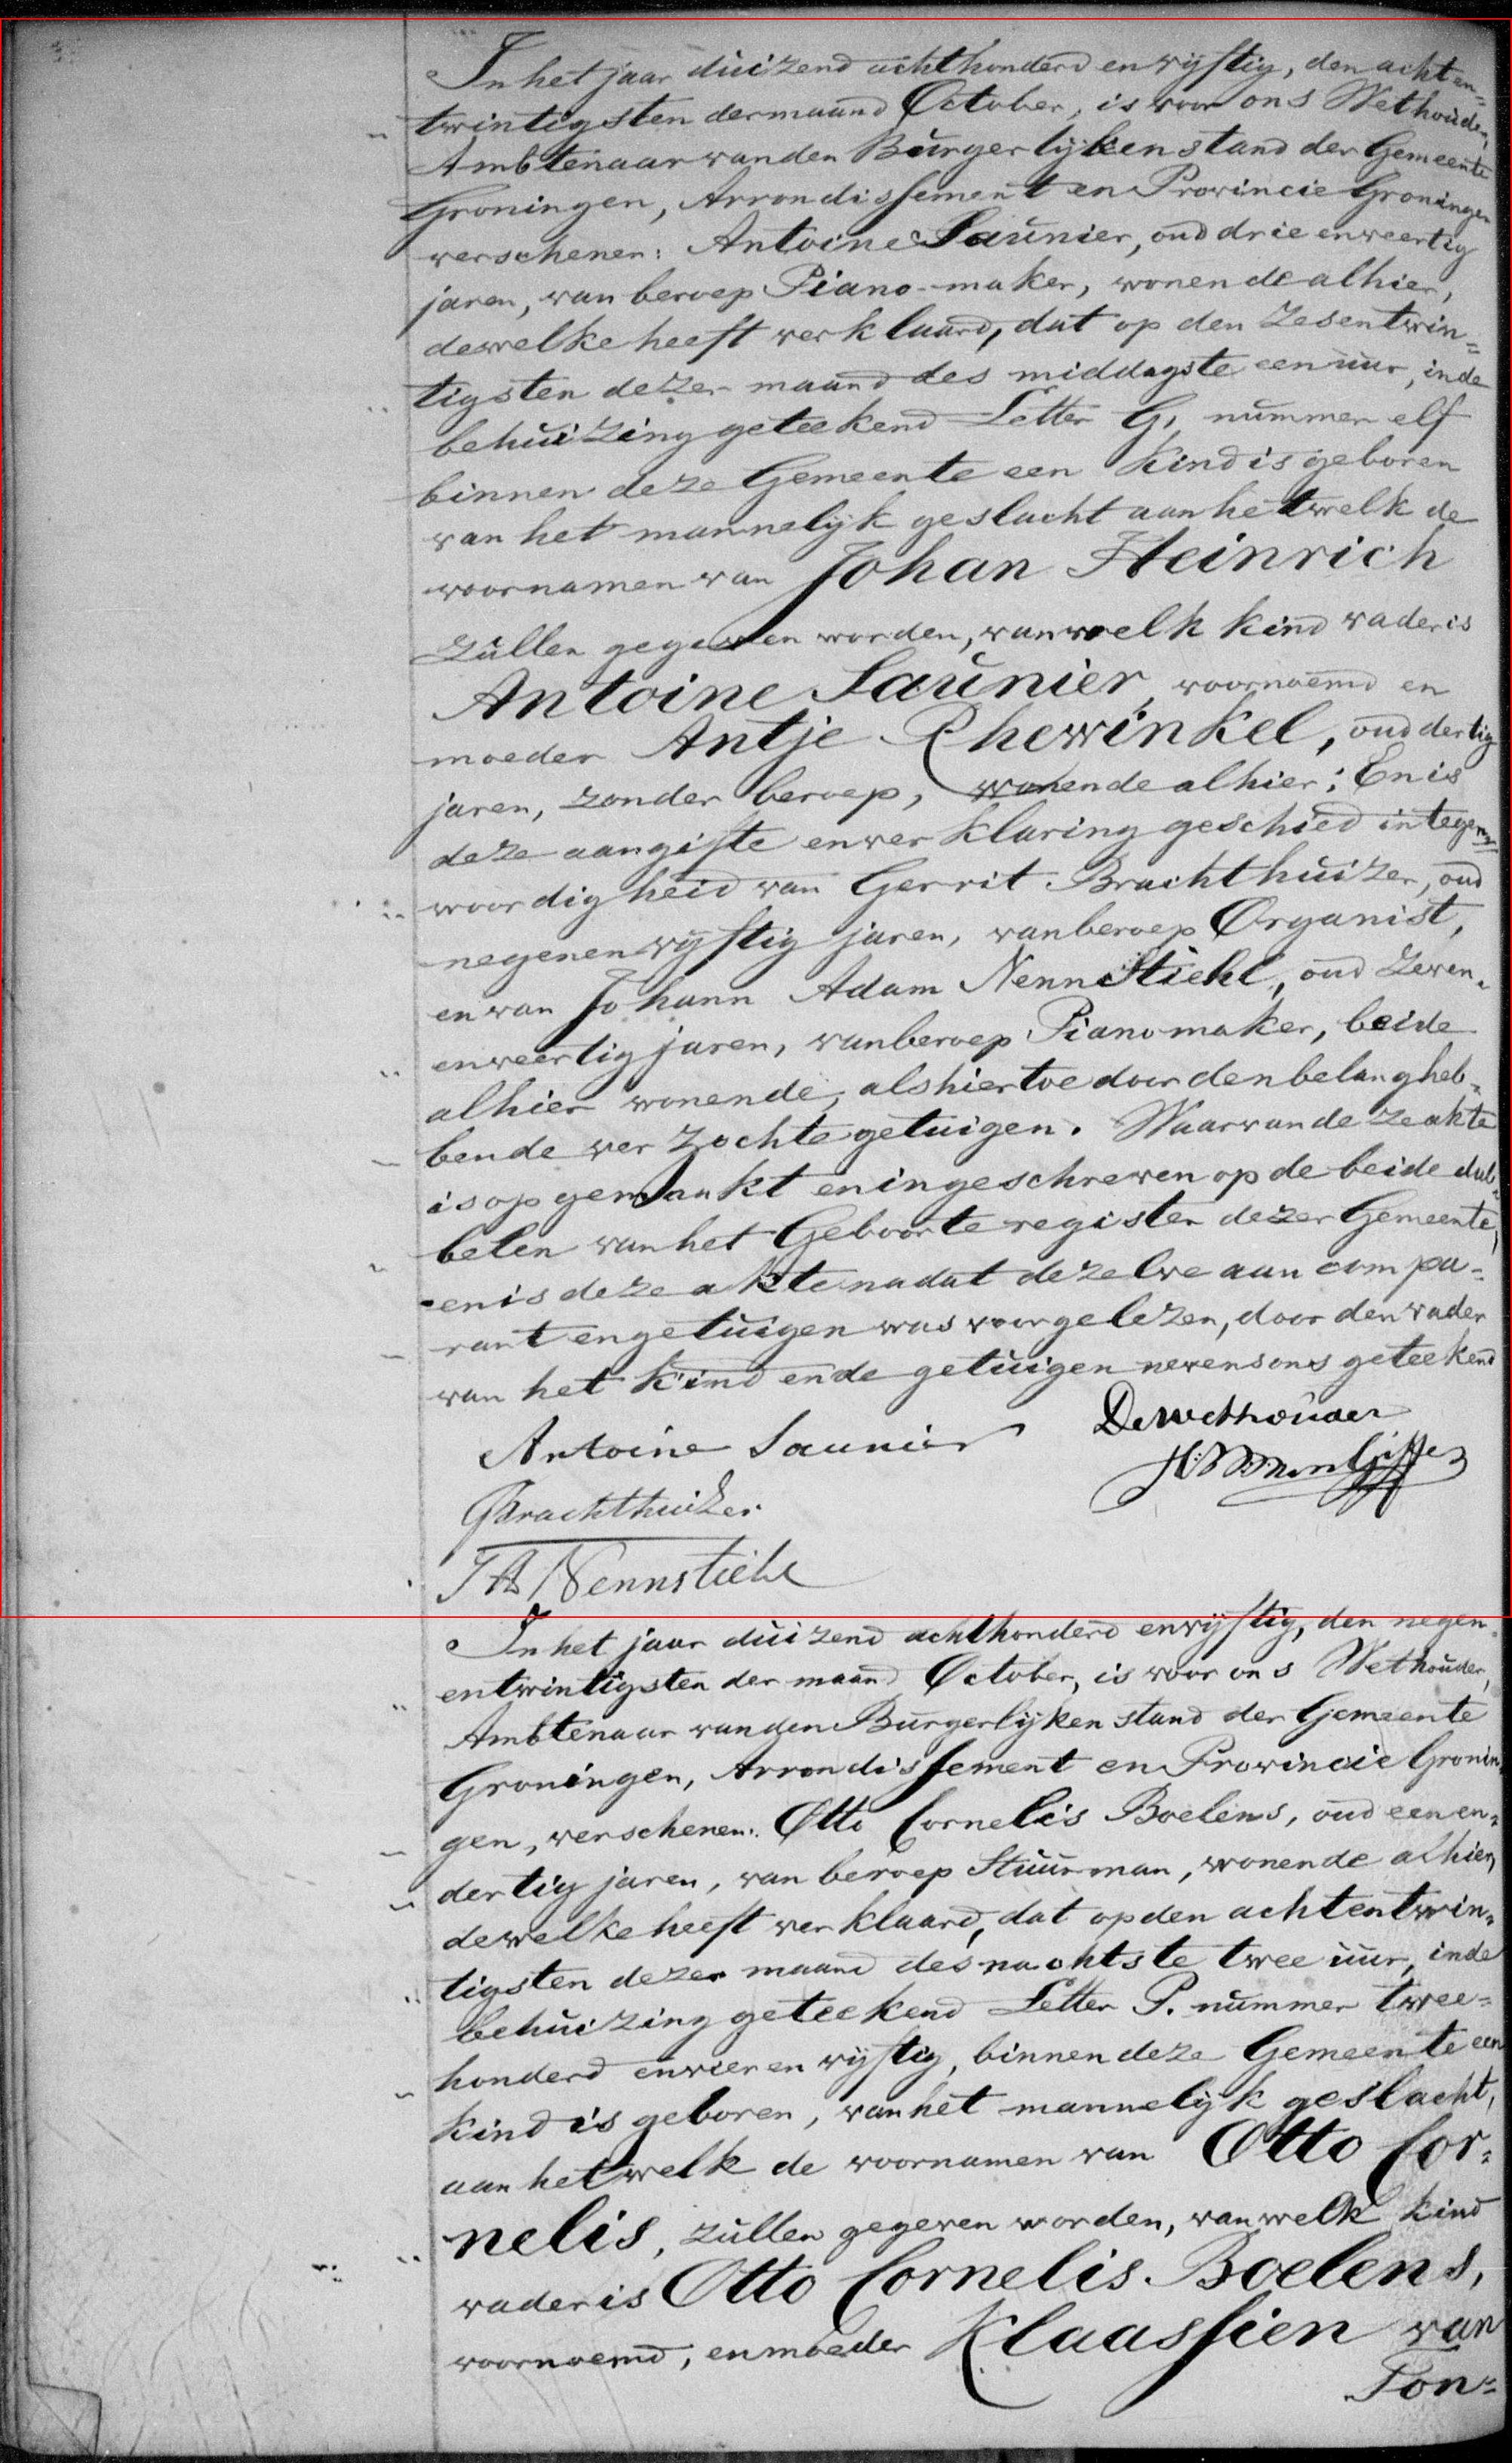 In het jaar duizend achthonderd en vijftig, den achten=
twintigsten der maand October, is voor ons Wethouder,
Ambtenaar van den Burgerlijken stand der Gemeente
Groningen, Arrondissement en Provincie Groningen
verschenen: Antoine Saunier, oud drie en veertig
jaren, van beroep Piano-maker, wonende alhier,
dewelke heeft verklaard, dat op den zesentwin=
tigsten dezer maand des middags te een uur, in de
behuizing geteekend Letter G, nummer elf
binnen deze Gemeente een kind is geboren
van het mannelijk geslacht aan hetwelk de
voornamen van Johan Heinrich
zullen gegeven worden, van welk kind vader is
Antoine Saunier, voornoemd en
moeder Antje Rhewinkel, oud dertig
jaren, zonder beroep, wonende alhier; En is
deze aangifte en verklaring geschied in tegen=
woordigheid van Gerrit Brachthuizer, oud
negenenvijftig jaren, van beroep Organist,
en van Johann Adam Nennstiehl, oud zeven=
enveertig jaren, van beroep Pianomaker, beide
alhier wonende, als hiertoe door den belangheb=
bende verzochte getuigen. Waarvan deze akte
is opgemaakt en ingeschreven op de beide dub=
belen van het Geboorte register dezer Gemeente,
en is deze akte nadat dezelve aan compa=
rant en getuigen was voorgelezen, door den vader
van het kind en de getuigen nevens ons geteekend
De wethouder
Antoine Saunier
GBrachthuizer
JA Nennstiehl
In het jaar duizend achthonderd en vijftig, den negen=
entwintigsten der maand October, is voor ons Wethouder,
Ambtenaar van den Burgerlijken stand der Gemeente
Groningen, Arrondissement en Provincie Gronin=
gen, verschenen: Otto Cornelis Boelens, oud een en=
dertig jaren, van beroep Stuurman, wonende alhier,
dewelke heeft verklaard, dat op den achtentwin=
tigsten dezer maand des nachts te twee uur, in de
behuizing geteekend Letter P. nummer twee=
honderd en vier en vijftig, binnen deze Gemeente een
kind is geboren, van het mannelijk geslacht,
aan hetwelk de voornamen van Otto Cor=
nelis, zullen gegeven worden, van welk kind
vader is Otto Cornelis Boelens,
voornoemd, en moeder Klaassien van
Ton=